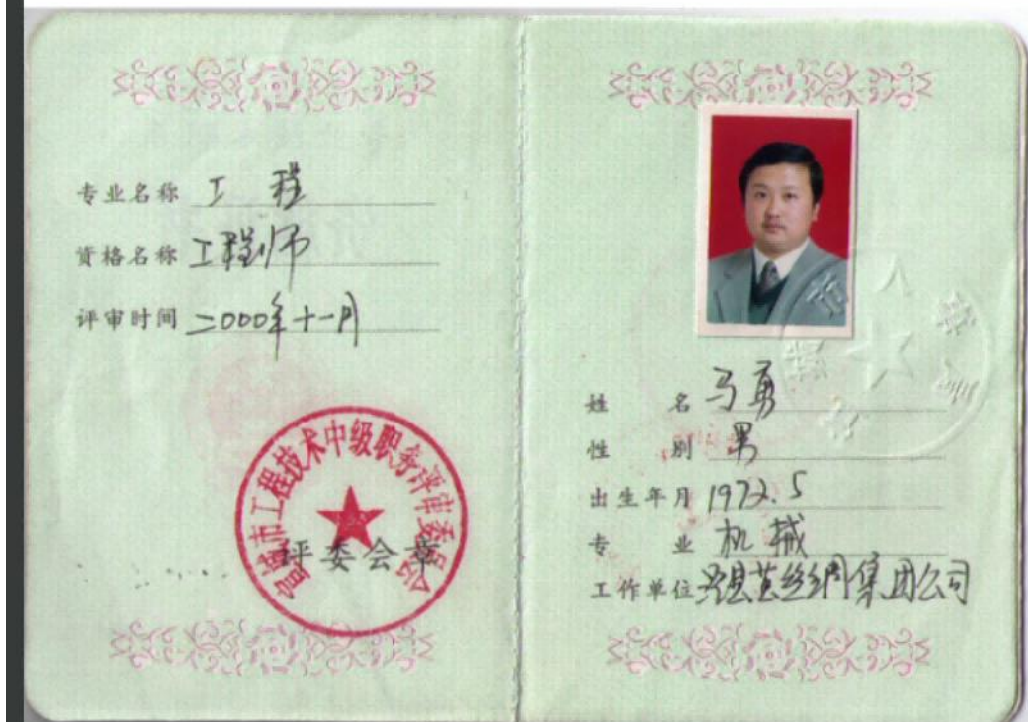 专业名称 工程
资格名称 工程师
评审时间 二000年十一月
市工程技术中级职务评审委员会
评委会章
姓名 马勇
性别 男
出生年月 1972.5
专业 机械
工作单位 县丝绸集团公司